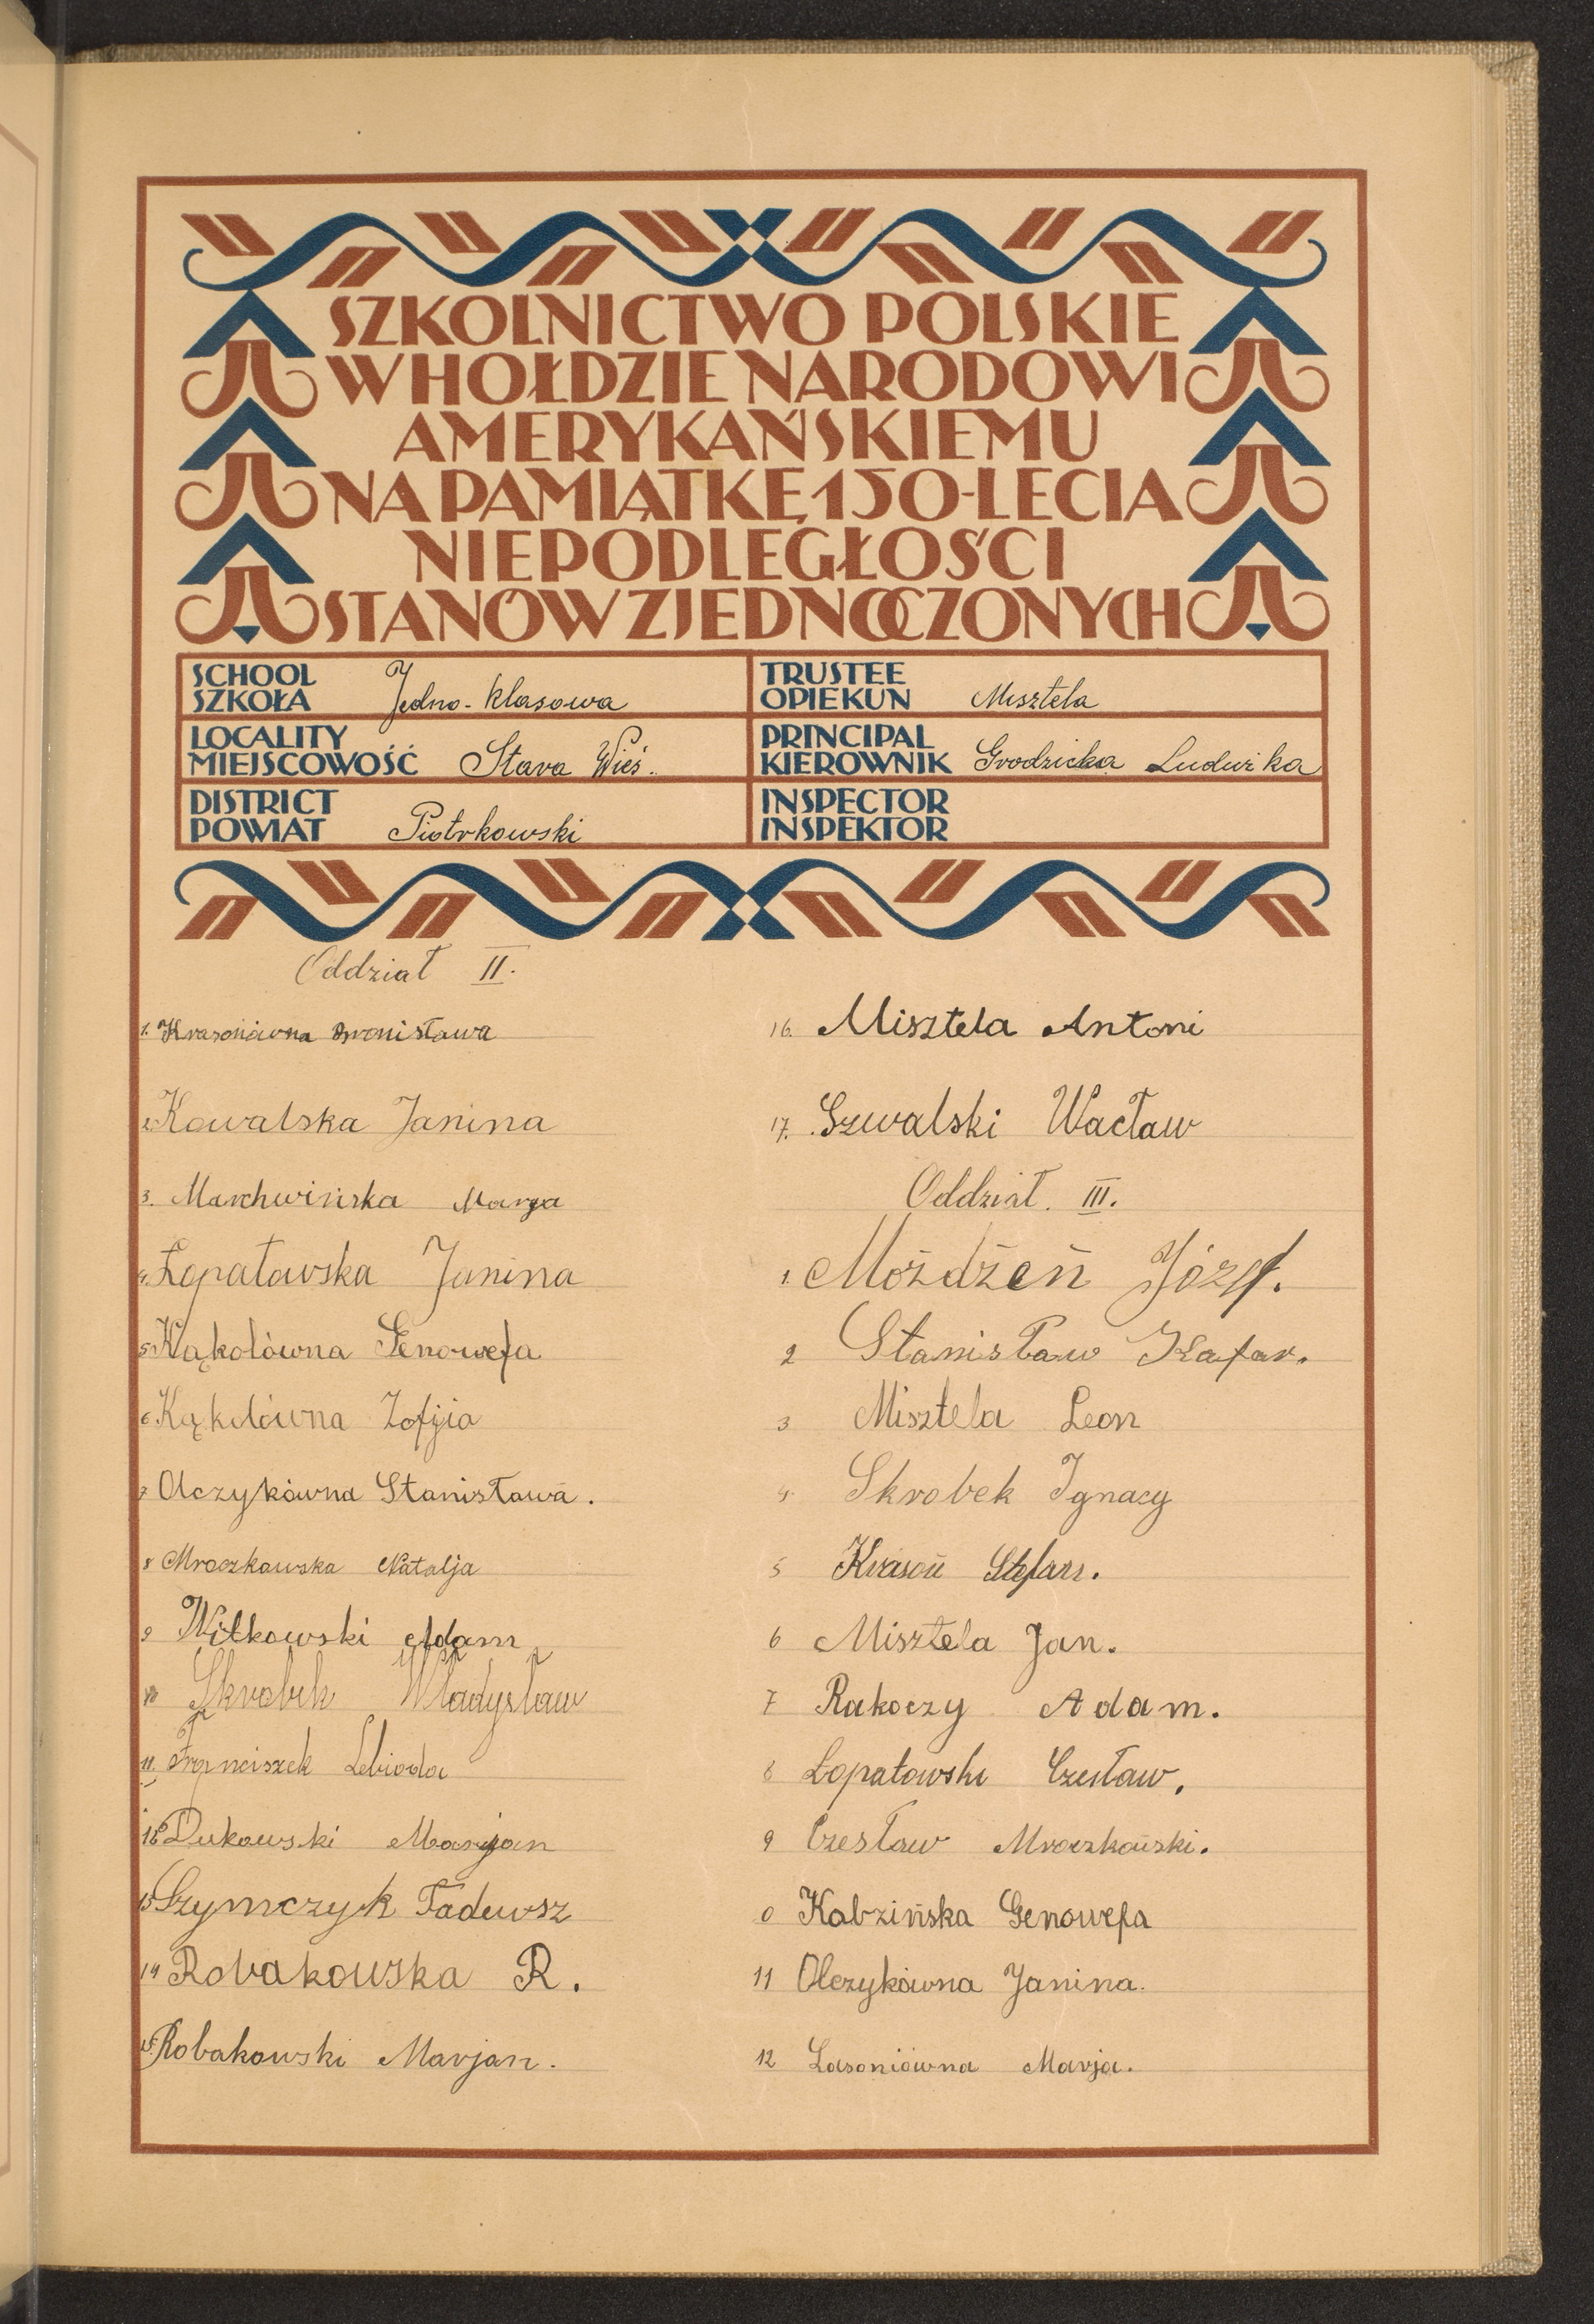 SZKOLNICTWO POLSKIE
W HOŁDZIE NARODOWI
AMERYKAŃSKIEMU
NA PAMIĄTKĘ 150-LECIA
NIEPODLEGŁOŚCI
STANÓW ZJEDNOCZONYCH
SCHOOL
SZKOŁA Jedno-klasowa
TRUSTEE
OPIEKUN Misztela
LOCALITY
MIEJSCOWOŚĆ Stara Wieś.
PRINCIPAL
KIEROWNIK Grodzicka Ludwika
DISTRICT
POWIAT Piotrkowski
INSPECTOR
INSPEKTOR
Oddział II.
1. Krasoniówna Bronisława
2. Kowalska Janina
3. Marchwińska Marja
4. Łopatowska Janina
5 Kąkolówna Genowefa
6 Kąkolówna Zofija
7 Olczykówna Stanisława.
8 Mroczkowska Natalja
9 Witkowski Adam
10 Skrobek Władysław
11. Franciszek Lebioda
12 Dukowski Marjan
13 Szymczyk Tadeusz
14 Robakowska R.
15. Robakowski Marjan.
16. Misztela Antoni
17. Szwalski Wacław
Oddział. III.
1. Moździeń Józef.
2 Stanisław Kafar.
3 Misztela Leon
4. Skrobek Ignacy
5 Krasoń Stefan.
6 Misztela Jan.
7 Rakoczy Adam.
8 Łopatowski Czesław.
9 Czesław Mroczkowski.
0 Kabzińska Genowefa
11 Olczykówna Janina.
12 Lasoniówna Marja.